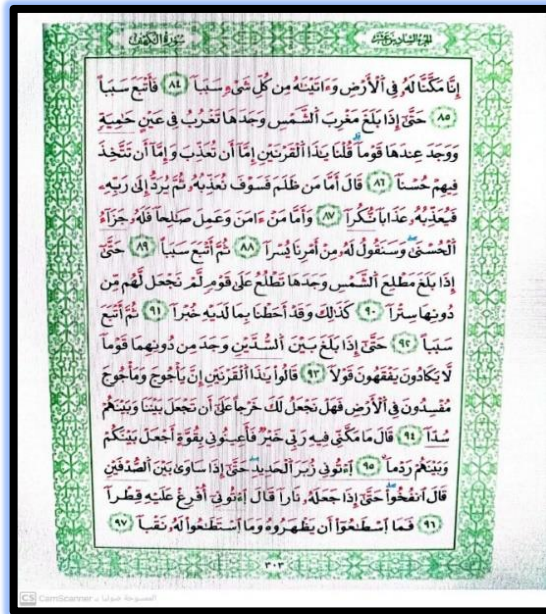 الجزء السادس عشر
سورة الكهف
إِنَّا مَكَّنَّا لَهُۥ فِي ٱلْأَرْضِ وَءَاتَيْنَٰهُ مِن كُلِّ شَيْءٍ سَبَباً ٨٤ فَأَتْبَعَ سَبَباً
٨٥ حَتَّىٰٓ إِذَا بَلَغَ مَغْرِبَ ٱلشَّمْسِ وَجَدَهَا تَغْرُبُ فِي عَيْنٍ حَٰمِيَةٍ
وَوَجَدَ عِندَهَا قَوْماً قُلْنَا يَٰذَا ٱلْقَرْنَيْنِ إِمَّآ أَن تُعَذِّبَ وَإِمَّآ أَن تَتَّخِذَ
فِيهِمْ حُسْناً ٨٦ قَالَ أَمَّا مَن ظَلَمَ فَسَوْفَ نُعَذِّبُهُۥ ثُمَّ يُرَدُّ إِلَىٰ رَبِّهِۦ
فَيُعَذِّبُهُۥ عَذَاباً نُّكُراً ٨٧ وَأَمَّا مَنْ ءَامَنَ وَعَمِلَ صَٰلِحاً فَلَهُۥ جَزَآءُ
ٱلْحُسْنَىٰ وَسَنَقُولُ لَهُۥ مِنْ أَمْرِنَا يُسْراً ٨٨ ثُمَّ أَتْبَعَ سَبَباً ٨٩ حَتَّىٰٓ
إِذَا بَلَغَ مَطْلِعَ ٱلشَّمْسِ وَجَدَهَا تَطْلُعُ عَلَىٰ قَوْمٍ لَّمْ نَجْعَل لَّهُم مِّن
دُونِهَا سِتْراً ٩٠ كَذَٰلِكَ وَقَدْ أَحَطْنَا بِمَا لَدَيْهِ خُبْراً ٩١ ثُمَّ أَتْبَعَ
سَبَباً ٩٢ حَتَّىٰٓ إِذَا بَلَغَ بَيْنَ ٱلسُّدَّيْنِ وَجَدَ مِن دُونِهِمَا قَوْماً
لَّا يَكَادُونَ يَفْقَهُونَ قَوْلاً ٩٣ قَالُوا۟ يَٰذَا ٱلْقَرْنَيْنِ إِنَّ يَاجُوجَ وَمَاجُوجَ
مُفْسِدُونَ فِي ٱلْأَرْضِ فَهَلْ نَجْعَلُ لَكَ خَرْجاً عَلَىٰٓ أَن تَجْعَلَ بَيْنَنَا وَبَيْنَهُمْ
سُدّاً ٩٤ قَالَ مَا مَكَّنِّي فِيهِ رَبِّي خَيْرٌ فَأَعِينُونِي بِقُوَّةٍ أَجْعَلْ بَيْنَكُمْ
وَبَيْنَهُمْ رَدْماً ٩٥ ءَاتُونِي زُبَرَ ٱلْحَدِيدِ حَتَّىٰٓ إِذَا سَاوَىٰ بَيْنَ ٱلصُّدُفَيْنِ
قَالَ ٱنفُخُوا۟ حَتَّىٰٓ إِذَا جَعَلَهُۥ نَاراً قَالَ ءَاتُونِيٓ أُفْرِغْ عَلَيْهِ قِطْراً
٩٦ فَمَا ٱسْطَٰعُوٓا۟ أَن يَظْهَرُوهُ وَمَا ٱسْتَطَٰعُوا۟ لَهُۥ نَقْباً ٩٧
٣٠٣
CS الممسوحة ضوئيا بـ CamScanner